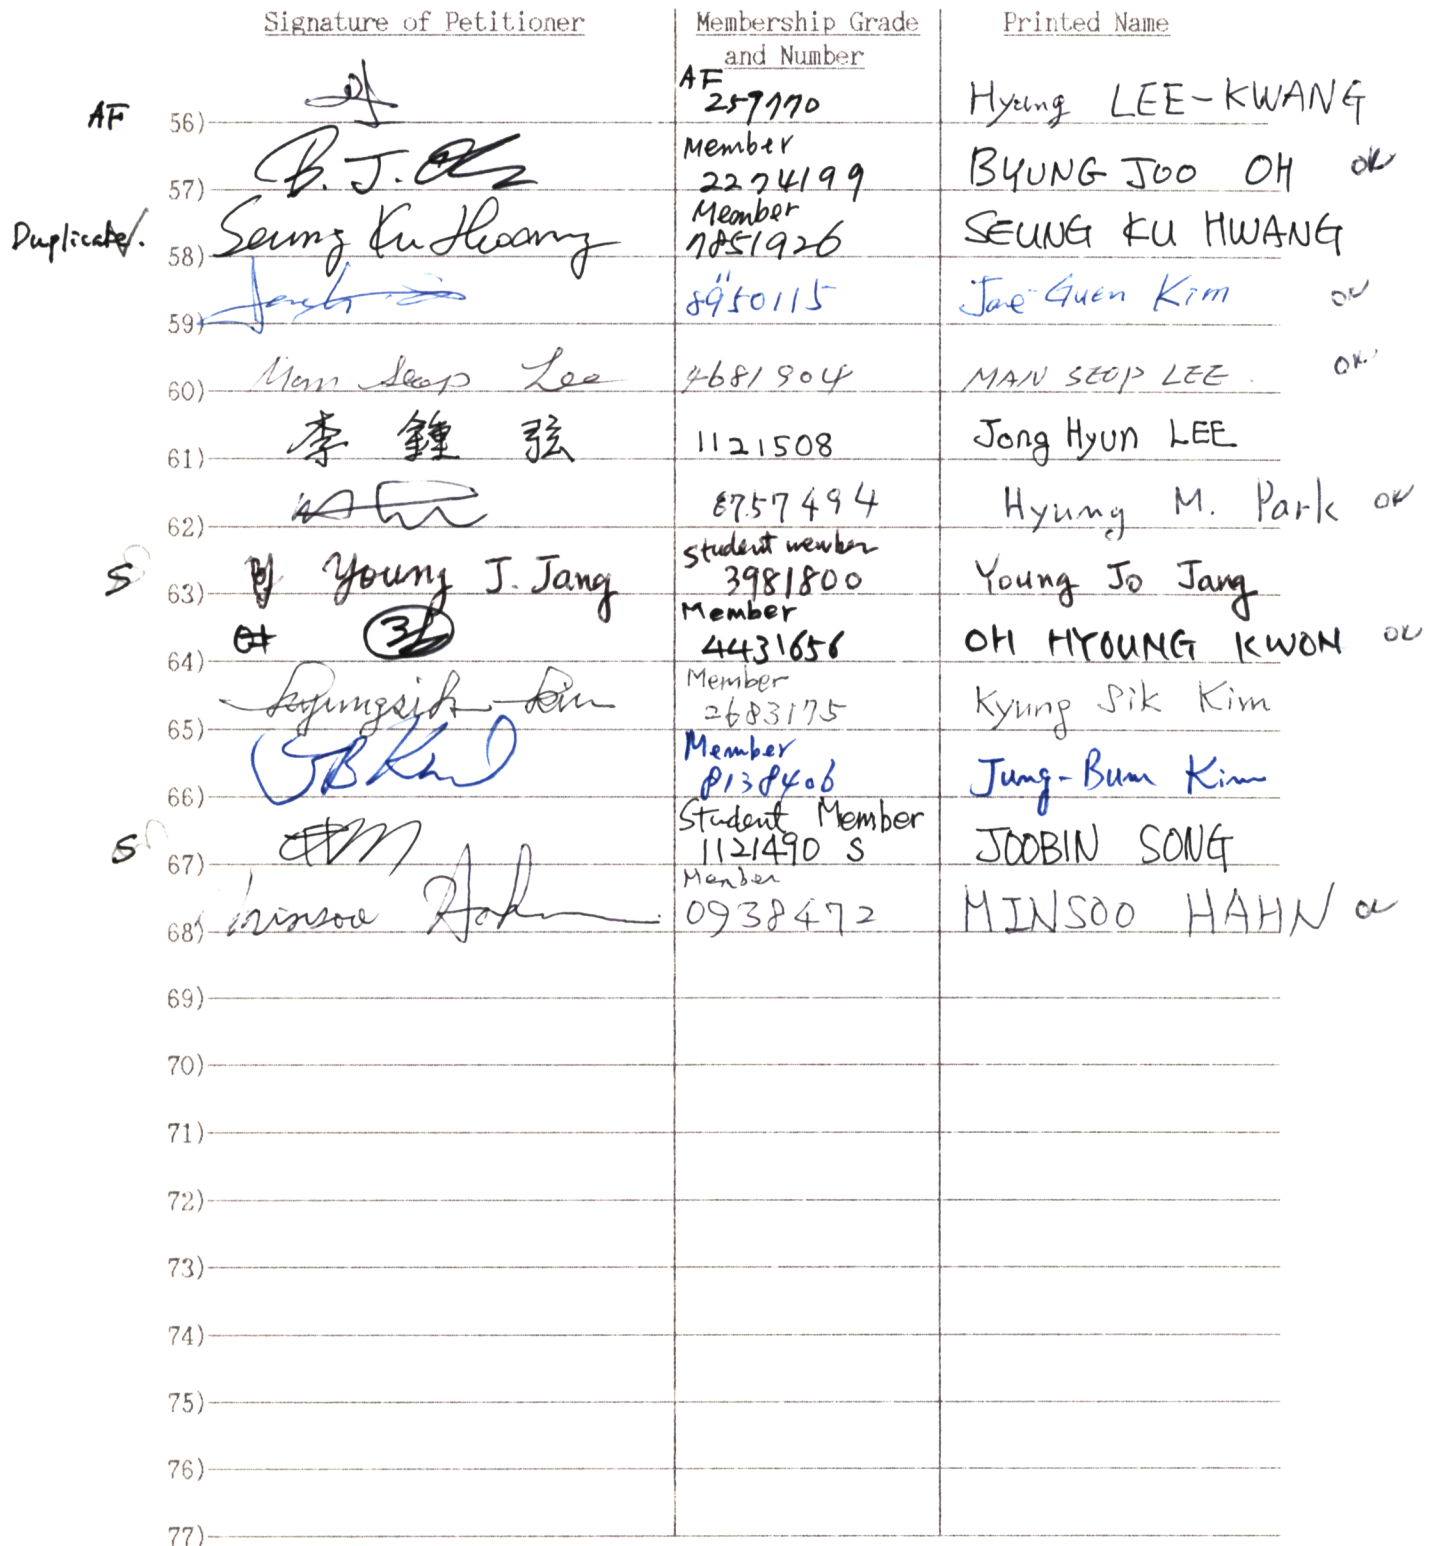 Signature of Petitioner Membership Grade and Number Printed Name
AF 56) AF 259770 Hyung LEE-KWANG
57) B. J. Member 2274199 BYUNG JOO OH OK
Duplicate. 58) Seung Ku Hwang Member 7851926 SEUNG KU HWANG
59) " 8950115 Jae-Guen Kim OK
60) Man Seop Lee 4681904 MAN SEOP LEE OK
61) 李 鍾 弦 1121508 Jong Hyun LEE
62) 8757494 Hyung M. Park OK
S 63) Young J. Jang Student member 3981800 Young Jo Jang
64) Member 4431656 OH HYOUNG KWON OK
65) Kyungsik Kim Member 2683175 Kyung Sik Kim
66) JB Kim Member 8138406 Jung-Bum Kim
S 67) Student Member 1121490 S JOOBIN SONG
68) minsoo Hahn Member 0938472 MINSOO HAHN OK
69)
70)
71)
72)
73)
74)
75)
76)
77)